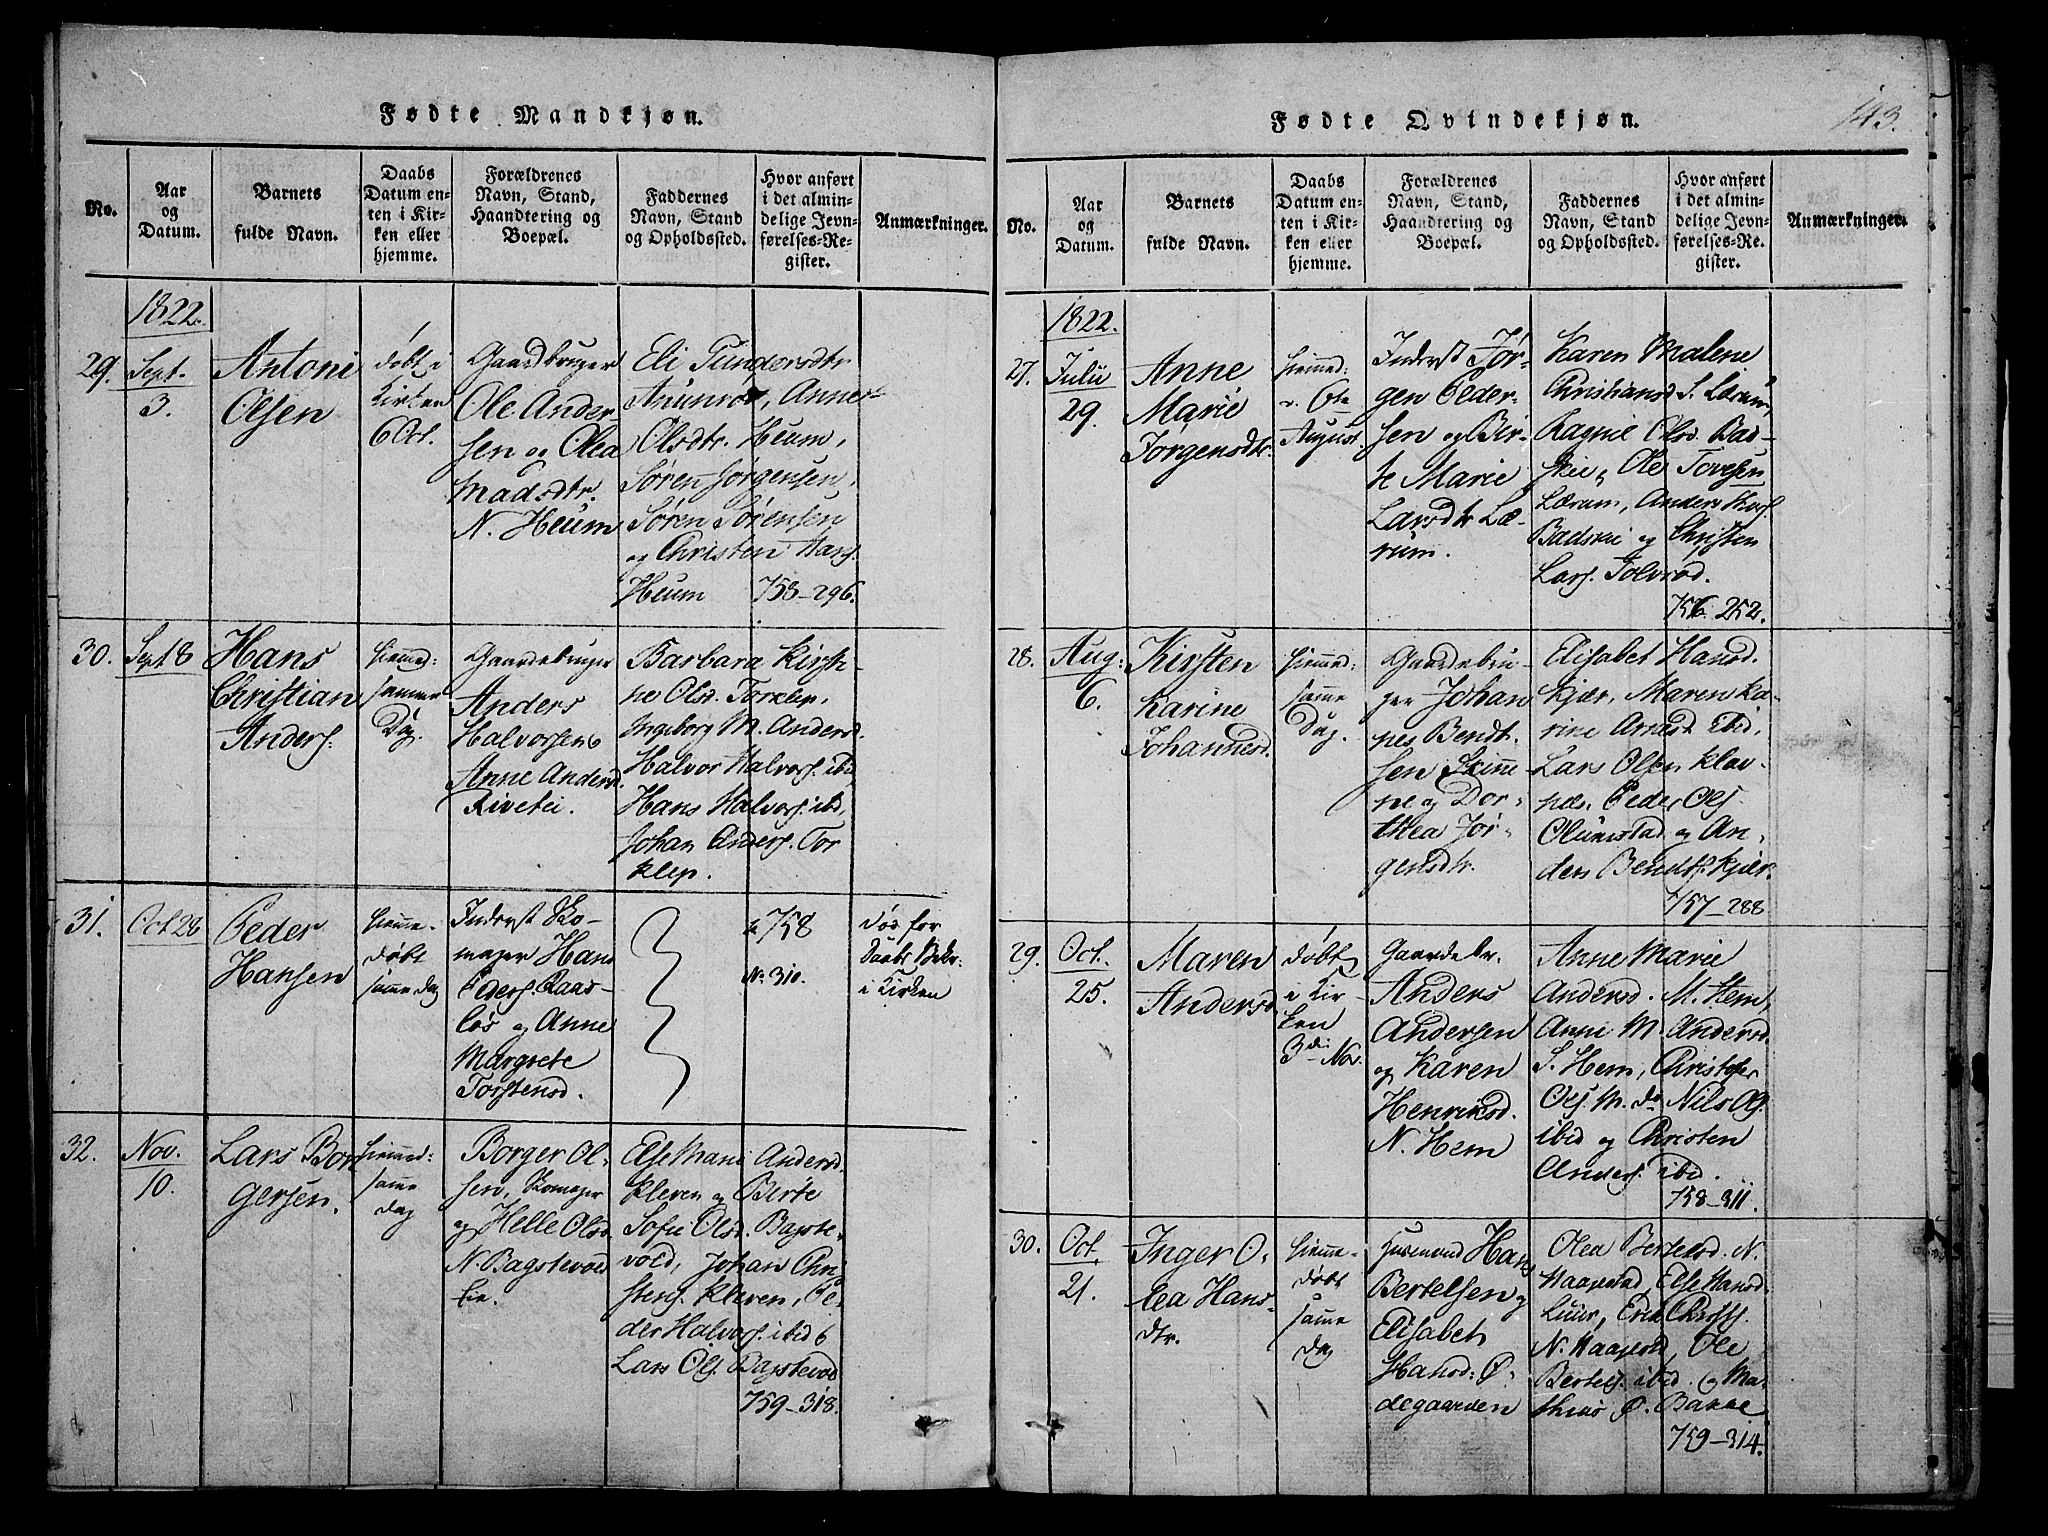 Fødte Mandkjøn.
No.
Aar
og
Datum.
Barnets
fulde Navn.
Daabs
Datum en-
ten i Kir-
ken eller
hjemme.
Forældrenes
Navn, Stand,
Haandtering og
Boepæl.
Faddernes
Navn, Stand
og Opholdssted.
Hvor anført
i det almin-
delige Jevn-
førelses-Re-
gister.
Anmærkninger.
1822.
29.
Sept.
3.
Antoni
Olsen
døbt i
Kirken
6 Oct.
Gaardbruger
Ole Ander
sen og Olea
Madsdtr.
N. Heum
Eli Gundersdtr
Anunrød, Anne
Olsdtr. Heum,
Søren Jørgensen,
Søren Sørensen
og Christen Hans.
Heum
758-296.
30.
Sept 18
Hans
Christian
Anders.
hiemmed:
samme
Dag.
Gaardebruger
Anders
Halvorsen
Anne Andersd.
Rivetei.
Barbara Kirsti-
ne Olsd. Torklep,
Ingeborg M. Andersd.
Halvor Halvors. ibid
Hans Halvors. ibd,
Johan Anders. Tor
klep.
31.
Oct 28
Peder
Hansen
hiemme-
døbt
samme dag
Inderst Sko-
mager Hans
Peders. Raas-
løs og Anne
Margrete
Torstensd.
758
No. 310.
døs før
Daabs Bekr.
i Kirken
32.
Nov.
10.
Lars Bor
gersen.
hiemmed:
samme
dag
Borger Ol-
sen, Skomager
og Helle Olsd.
N. Bagstevold
eie.
Else Marie Andersd.
Kleven og Berte
Sofie Olsd. Bagste-
vold, Johan Chri
stens. Kleven, Pe-
der Halvors. ibid
Lars Ols. Bagstevold
759-318.
Fødte Qvindekjøn.
143.
No.
Aar
og
Datum.
Barnets
fulde Navn.
Daabs
Datum en-
ten i Kir-
ken eller
hjemme.
Forældrenes
Navn, Stand,
Haandtering og
Boepæl.
Faddernes
Navn, Stand
og Opholdssted.
Hvor anført
i det almin-
delige Jevn-
førelses-Re-
gister.
Anmærkninger.
1822.
27.
Julii
29.
Anne
Marie
Jørgensdtr.
hiemmed:
August.
Inderst Jør-
gen Peder-
sen og Bir-
te Marie
Larsdtr Læ-
rum.
Karen Malene
Christiansd S. Lærum,
Ragnie Olsd. Bad-
skie, Ole Tovesen
Lærum, Anders
Badskie og Christen
Lars. Tolvrød.
756. 252.
28.
Aug:
6.
Kirsten
Karine
Johannesd.
hiemmed:
samme
Dag.
Gaardebru-
ger Johan
nes Bendt-
sen Skinne-
ne og Dor-
thea Jør-
gensdtr.
Elisabet Hansd.
Kjær, Maren Ka-
rine Arnesd Ebid,
Lars Olsen Klav-
næs. Peder Ols.
Olumstad og An-
ders Bendts. Kjær.
757-288
29.
Oct.
25.
Maren
Andersd.
døbt
i Kir-
ken
3die Nov.
Gaardebr.
Anders
Andersen
og Karen
Henriksd.
N. Hem
Anne Marie
Andersd. M. Hem,
Anne M. Andersd
S. Hem, Christofer
Ols. M. do Nils Ols.
ibid og Christen
Anders. ibid.
758-311.
30.
Oct.
21.
Inger O-
lea Hans-
dtr.
hiemme-
døbt
samme
dag
Husmand Hans
Bertelsen og
Elisabet
Hansd: Ø-
degaarden
Olea Bertelsd. N.
Haapestad, Else Hansd.
Luur, Erik Christs.
N. Haapestd, Ole
Bertels. ibid. og Ma-
thias Ø. Bakke
759-314.